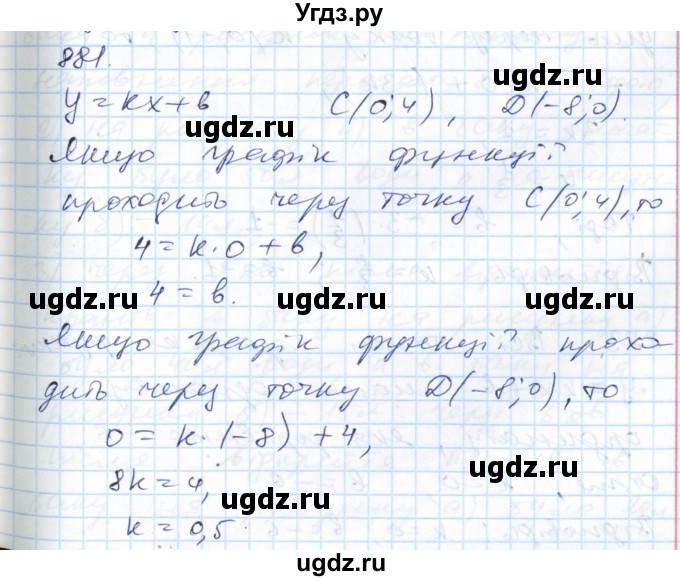 Угдз.ру
881.
y = kx + b    C(0;4), D(-8;0).
Якщо графік функції
проходить через точку C(0;4), то
4 = k·0 + b,
4 = b.
Якщо графік функції прохо
дить через точку D(-8;0), то
0 = k·(-8) + 4,
8k = 4,
k = 0,5.
ugdz.ru
ugdz.ru
ugdz.ru
ugdz.ru
ugdz.ru
ugdz.ru
ugdz.ru
ugdz.ru